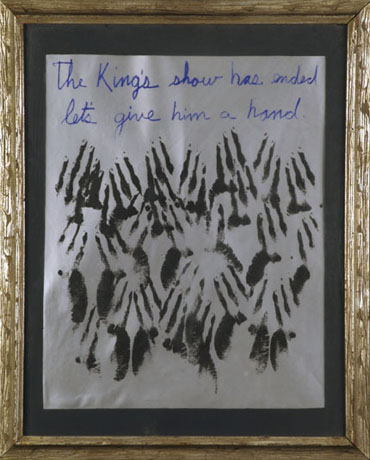 The King's show has ended
let's give him a hand.